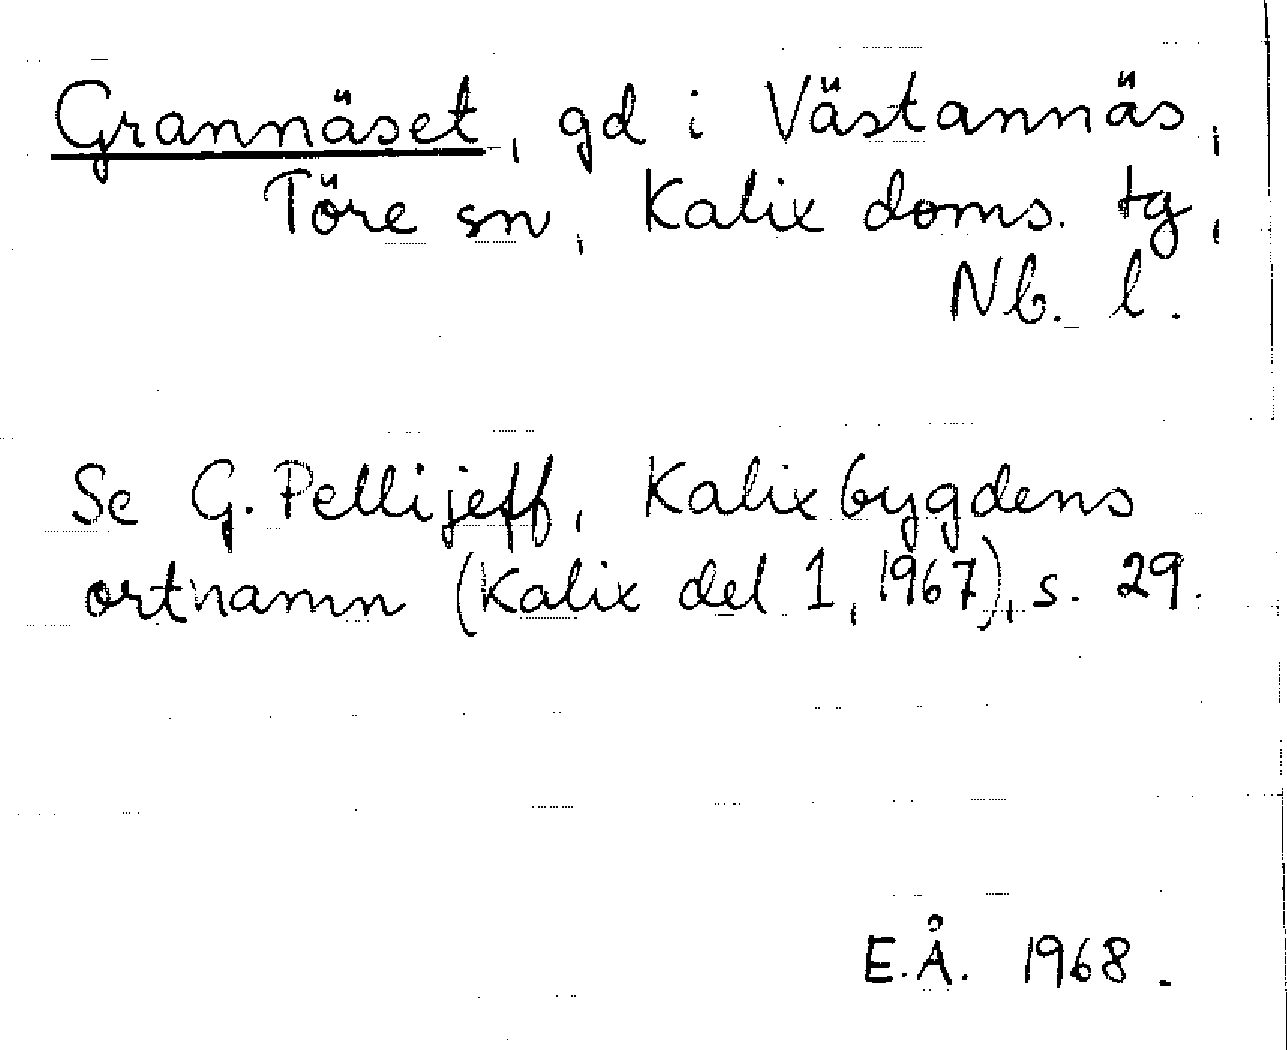 Grannäset, gd i Västannäs,
Töre sn, Kalix doms. tg,
Nb. l.
Se G. Pellijeff, Kalixbygdens
ortnamn (Kalix del 1, 1967), s. 29.
E.Å. 1968.